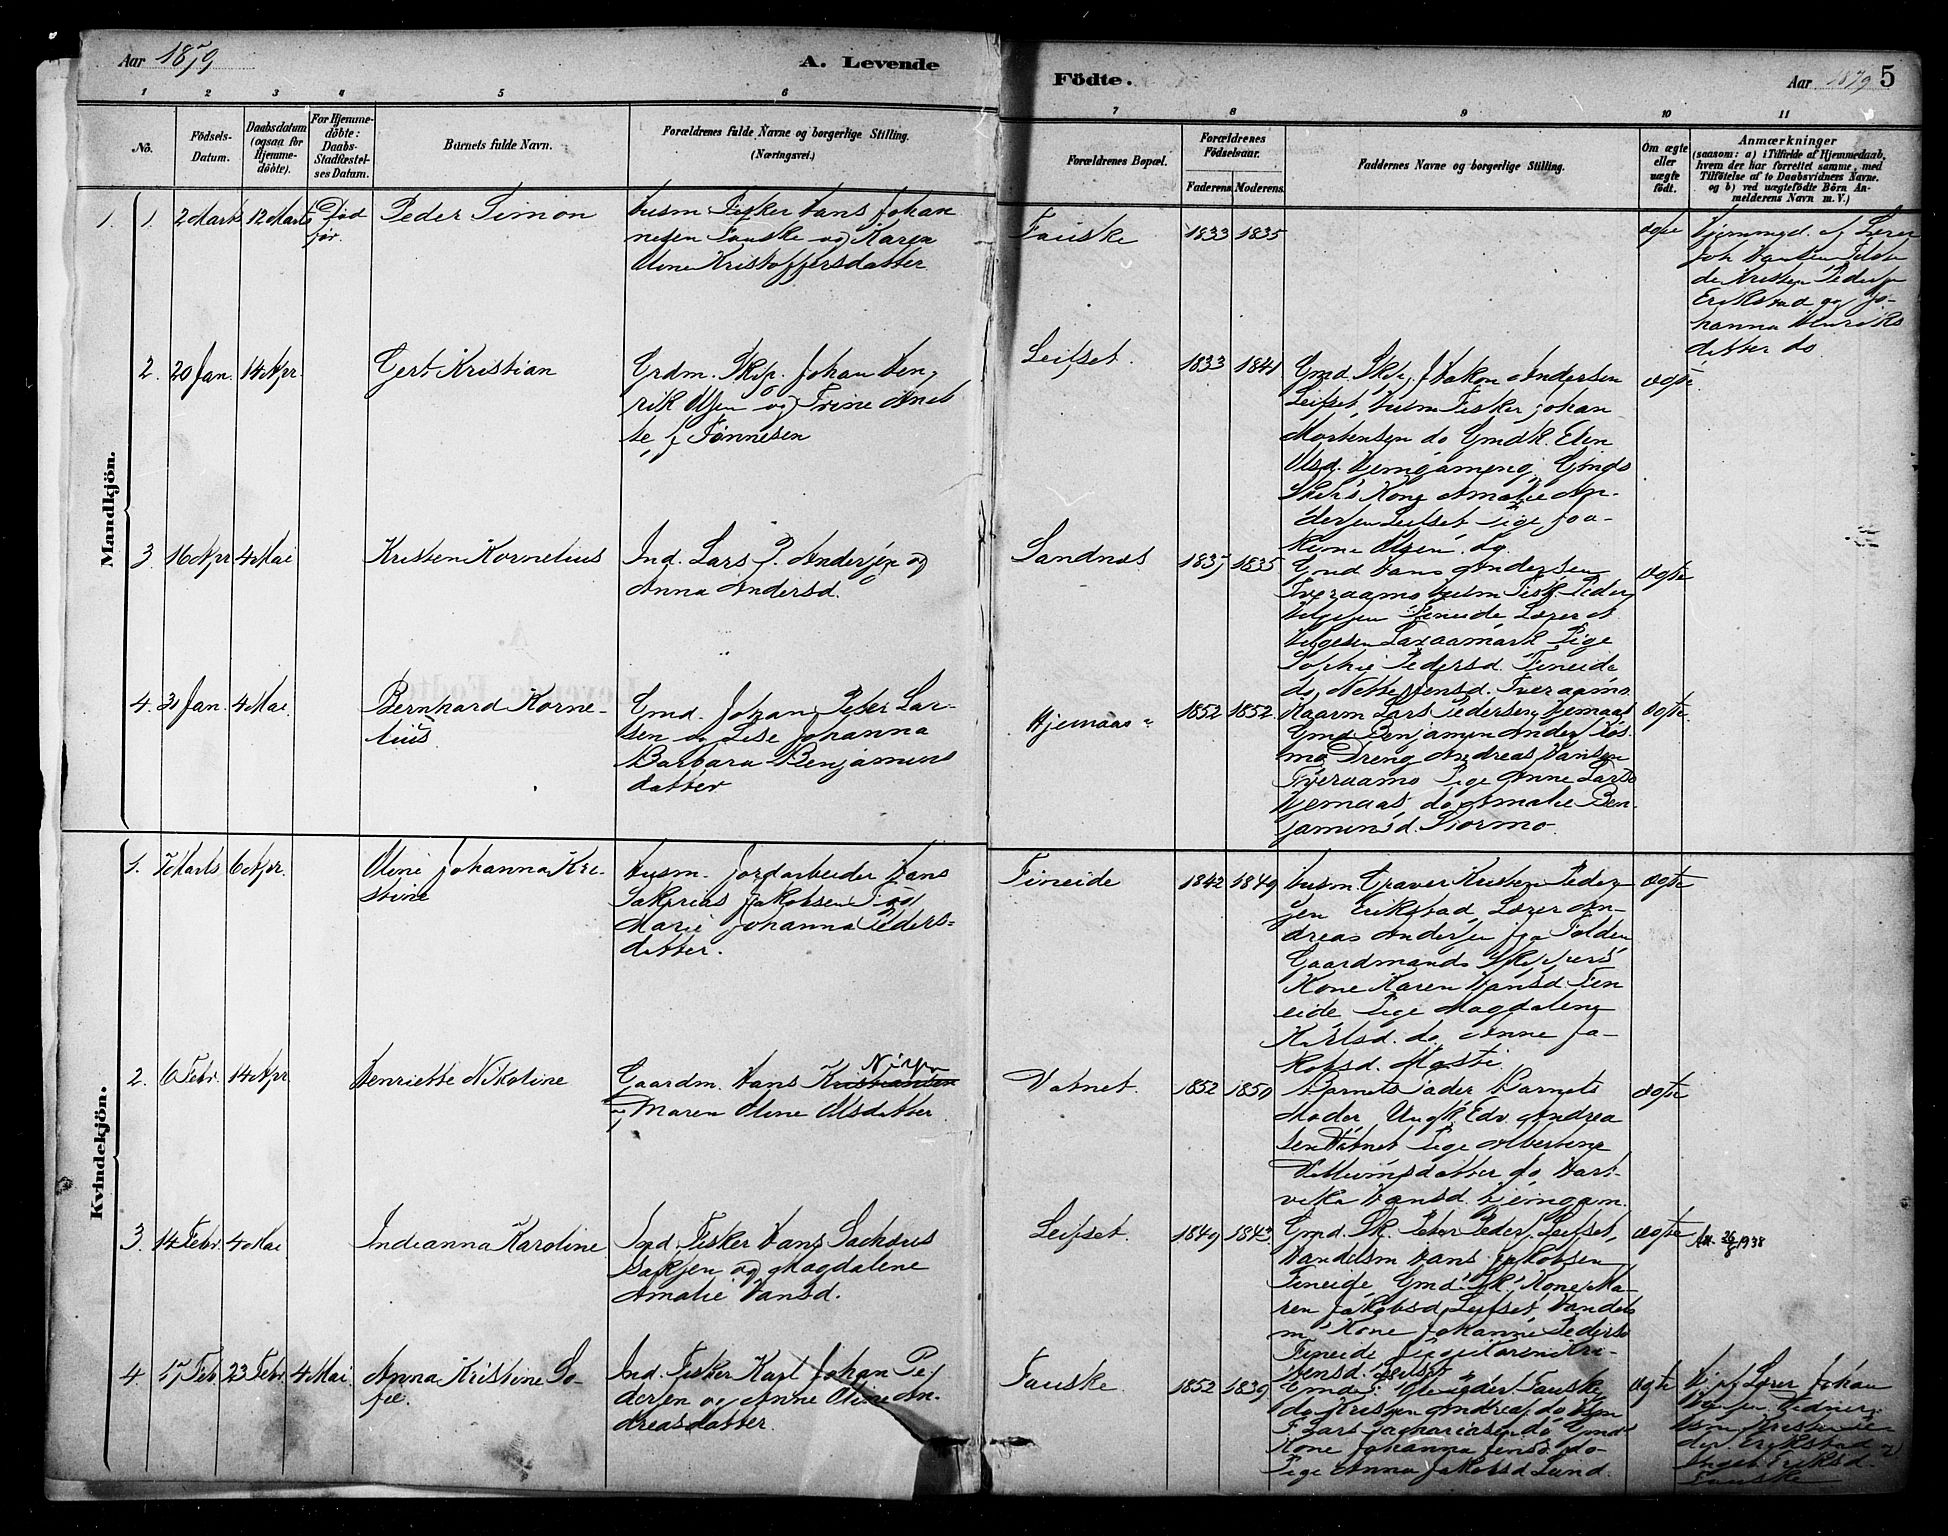 Aar 1879
A. Levende
Födte.
Aar 1879 5
1 2 3 4 5 6 7 8 9 10 11
No.
Födsels-Datum.
Daabsdatum (ogsaa for Hjemmedöbte).
For Hjemmedöbte: Daabs-Stadfæstelses Datum.
Barnets fulde Navn.
Forældrenes fulde Navne og borgerlige Stilling. (Næringsvei.)
Forældrenes Bopæl.
Forældrenes Födselsaar.
Faderens. Moderens.
Faddernes Navne og borgerlige Stilling.
Om ægte eller uægte födt.
Anmærkninger
(saasom: a) i Tilfælde af Hjemmedaab, hvem der har forrettet samme, med Tilföielse af to Daabsvidners Navne. og b) ved uægtefödte Börn Anmelderens Navn m. V.)
Mandkjön.
1. 1. 2 Marts 12 Marts Död før.
Peder Simon
Husm Fisker Hans Johan
nesen Fauske og Karen
Oline Kristoffersdatter
Fauske 1833 1835
ægte
Hjemmed. af Lærer
Joh Hansen Vidner
Kristen Peders
Erikstad og Jo-
hanna Henriks
datter do
2. 20 Jan. 14 Apr.
Gert Kristian
Grdm. Skip. Johan Hen
rik Olsen og Trine Anet
te f Tönnesen
Leifset. 1833 1841
Gmd. Håkon Andersen
Leifset, Husm Fisker Johan
Mortensen do Gmdk. Elen
Olsd. Gmds
Kone Amalie An-
dersen Leifset Pige Joa-
kime Olsen do.
ægte
3. 16 Apr 4 Mai
Kristen Kornelius
Ind. Lars P. Andersen og
Anna Andersd.
Sandnæs 1837 1835
Gmd Hans Andersen
Tveraamo Husm Fisk. Peder
Helgesen Fineide Lærer
Helgesen Laxaamark Pige
Sophie Pedersd. Fineide
do Nette Jensd. Tveraamo
ægte
4. 31 Jan. 4 Mai.
Bernhard Korne-
lius
Gmd. Johan Peter Lar-
sen og Lise Johanna
Barbara Benjamins
datter
Hjemaas 1852 1852
Kaarm Lars Pedersen Hjemaas
Gmd Benjamin Anders
mo Dreng Andreas Hansen
Tveraamo Pige Anne Larsd
Hjemaas, do Amalie Ben-
jaminsd. Stormo.
ægte.
Kvindekjön.
1. 7 Marts 6 Apr.
Oline Johanna Kri-
stine
Husm. Jordarbeider Hans
Sakarias Jakobsen og
Marie Johanna Peders-
datter.
Fineide 1842 1849
Husm Graver Kristen Peder
sen Erikstad Lærer An-
dreas Andersen
Gaardmands Skippers
Kone Karen Hansd. Fin
eide Pige Magdalene
Karlsd. do Anne Ja-
kobsd. Mosti
ægte
2. 6 Febr. 14 Apr
Henriette Nikoline
Gaardm. Hans Kristiansen
og Maren Oline Olsdatter
Vatnet 1852 1850
Barnets Fader Barnets
Moder Ungk. Edv Andrea
sen Vatnet Pige Albertine
Villumsdatter do Hart-
vika Hansd.
ægte
3. 14 Febr. 4 Mai
Indianna Karoline
Ind. Fisker Hans Sachæus
og Magdalene
Amalie Hansd.
Leifset. 1849 1843
Gmd. Sk. Peter Peders. Leifset,
Handelsm Hans Jakobsen
Fineide Gmd Sk. Kone Ma-
ren Jakobsd Leifset, Handels
m Kone Johanne Pedersd
Fineide Pige Karen Kri-
stensd. Leifset
ægte
Att. 26/8 1938
4. 17 Feb. 23 Febr. 4 Mai.
Anna Kristine So-
fie.
Ind. Fisker Karl Johan Pe-
dersen og Anne Oline An-
dreasdatter
Fauske 1852 1839
Gmd. Fauske
do Kristen Andreas. do
F. Lars Zachariasen do Gmds
Kone Johanna Jensd. do
Pige Anna Jakobsd Lund
ægte
H. af Lærer Johan
Hansen. Vidner:
Husm Kristen Pe-
ders Erikstad og
Inget Eriksd.
Fauske